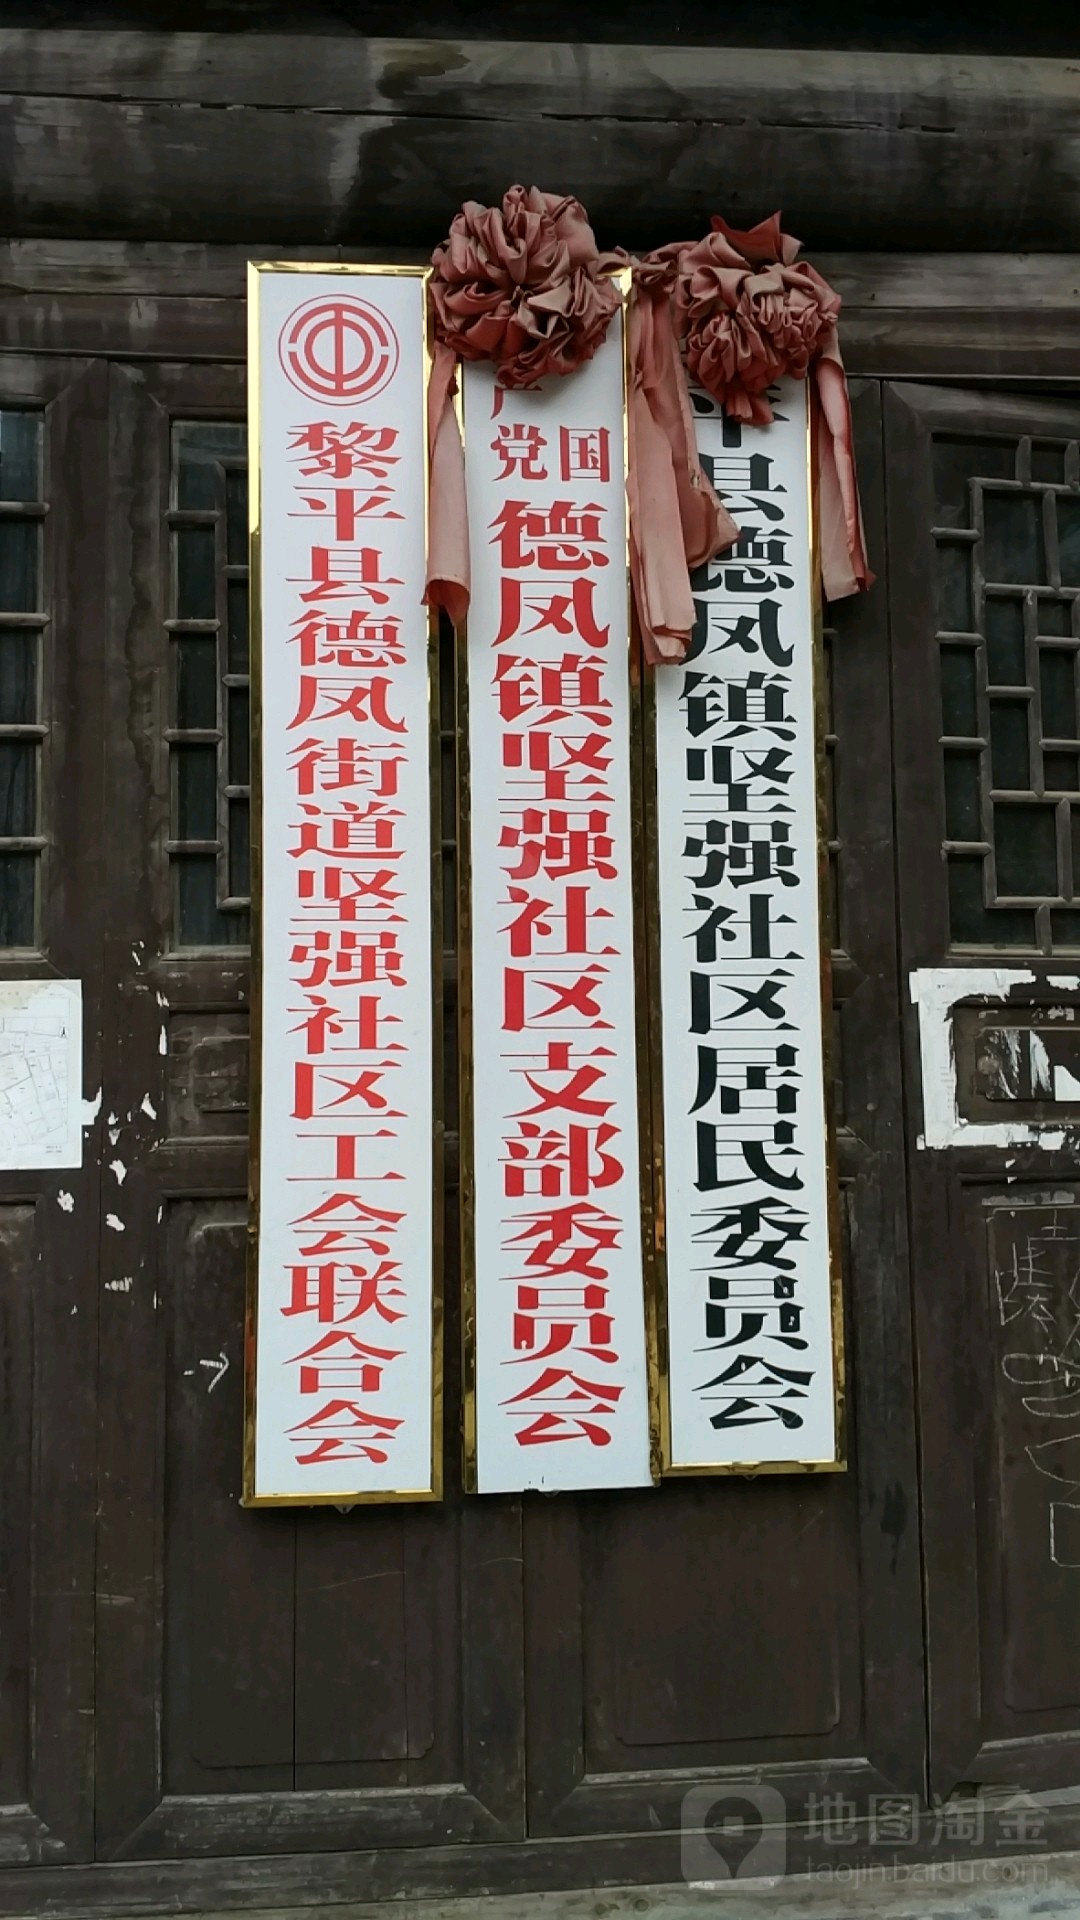 黎平县德凤街道坚强社区工会联合会
党国
德凤镇坚强社区支部委员会
县德凤镇坚强社区居民委员会
地图淘金
taojin.baidu.com